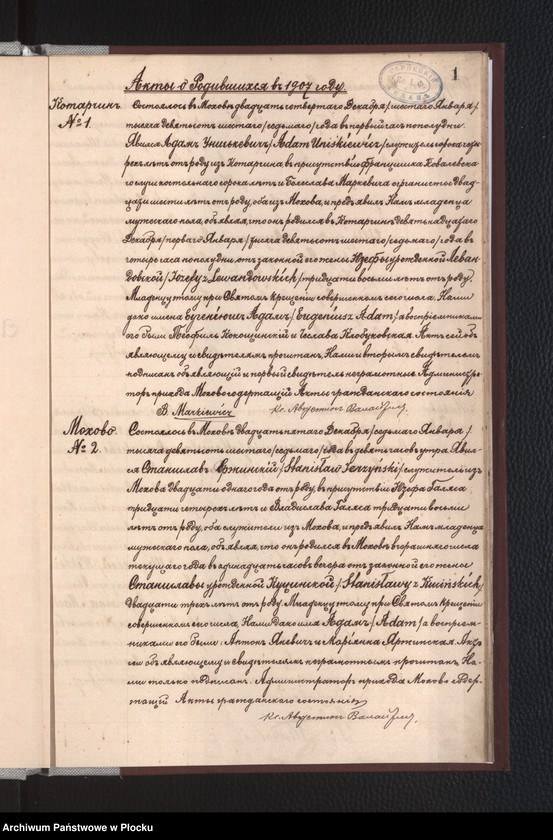 1
Акты о Родившихся въ 1907 году.
Котарчинъ
№ 1.
Состоялось въ Моховѣ двадцать четвертаго Декабря /шестаго Января/
тысяча девятьсотъ шестаго /седьмаго/ года въ первый часъ пополудни.
Явился Адамъ Унишкевичъ /Adam Uniśkiewicz/ служитель сорока
лѣтъ отъ роду изъ Котарчина въ присутствіи Францишка Ковалевска-
го слуги костельнаго сорока лѣтъ и Болеслава Маркевича органиста двад-
цати шести лѣтъ отъ роду, оба изъ Мохова, и предъявилъ Намъ младенца
мужескаго пола, объявляя, что онъ родился въ Котарчинѣ девятнадцатаго
Декабря /перваго Января/ тысяча девятьсотъ шестаго /седьмаго/ года въ
четыре часа пополудни отъ законной его жены Юзефы урожденной Леван-
довской /Józefy z Lewandowskich/ тридцати восьми лѣтъ отъ роду.
Младенцу тому при Святомъ Крещеніи совершенномъ сего числа Нами
дано имя Евгеніюшъ Адамъ /Eugeniusz Adam/ а воспріемниками
его были Теофиль Кокошинскій и Чеслава Клобуковская. Актъ сей объ-
являющему и свидѣтелямъ прочитанъ, Нами и вторымъ свидѣтелемъ
подписанъ объявляющій и первый свидѣтель неграмотные. Администра-
торъ прихода Мохово содержащій Акты гражданскаго состоянія
B. Markiewicz Кс. Августинъ
Мохово
№ 2.
Состоялось въ Моховѣ двадцать пятаго Декабря /седьмаго Января/
тысяча девятьсотъ шестаго /седьмаго/ года въ девять часовъ утра. Явил-
ся Станиславъ Ержинскій /Stanisław Jerzyński/ служитель изъ
Мохова двадцати одного года отъ роду, въ присутствіи Юзефа Галяса
тридцати четырехъ лѣтъ и Владислава Галяса тридцати восьми
лѣтъ отъ роду, оба служители изъ Мохова, и предъявилъ Намъ младенца
мужескаго пола, объявляя, что онъ родился въ Моховѣ вчерашняго числа
текущаго года въ одинадцать часовъ вечера отъ законной его жены
Станиславы урожденной Куцинской /Stanisławy z Kucińskich/
двадцати трехъ лѣтъ отъ роду. Младенцу тому при Святомъ Крещеніи
совершенномъ сего числа, Нами дано имя Адамъ /Adam/ а воспріем-
никами его были: Антонъ Яневичъ и Маріянна Яржинская. Актъ
сей объявляющему и свидѣтелямъ неграмотнымъ прочитанъ, На-
ми только подписанъ. Администраторъ прихода Мохово содер-
жащій Акты гражданскаго состоянія
Кс. Августинъ
Archiwum Państwowe w Płocku